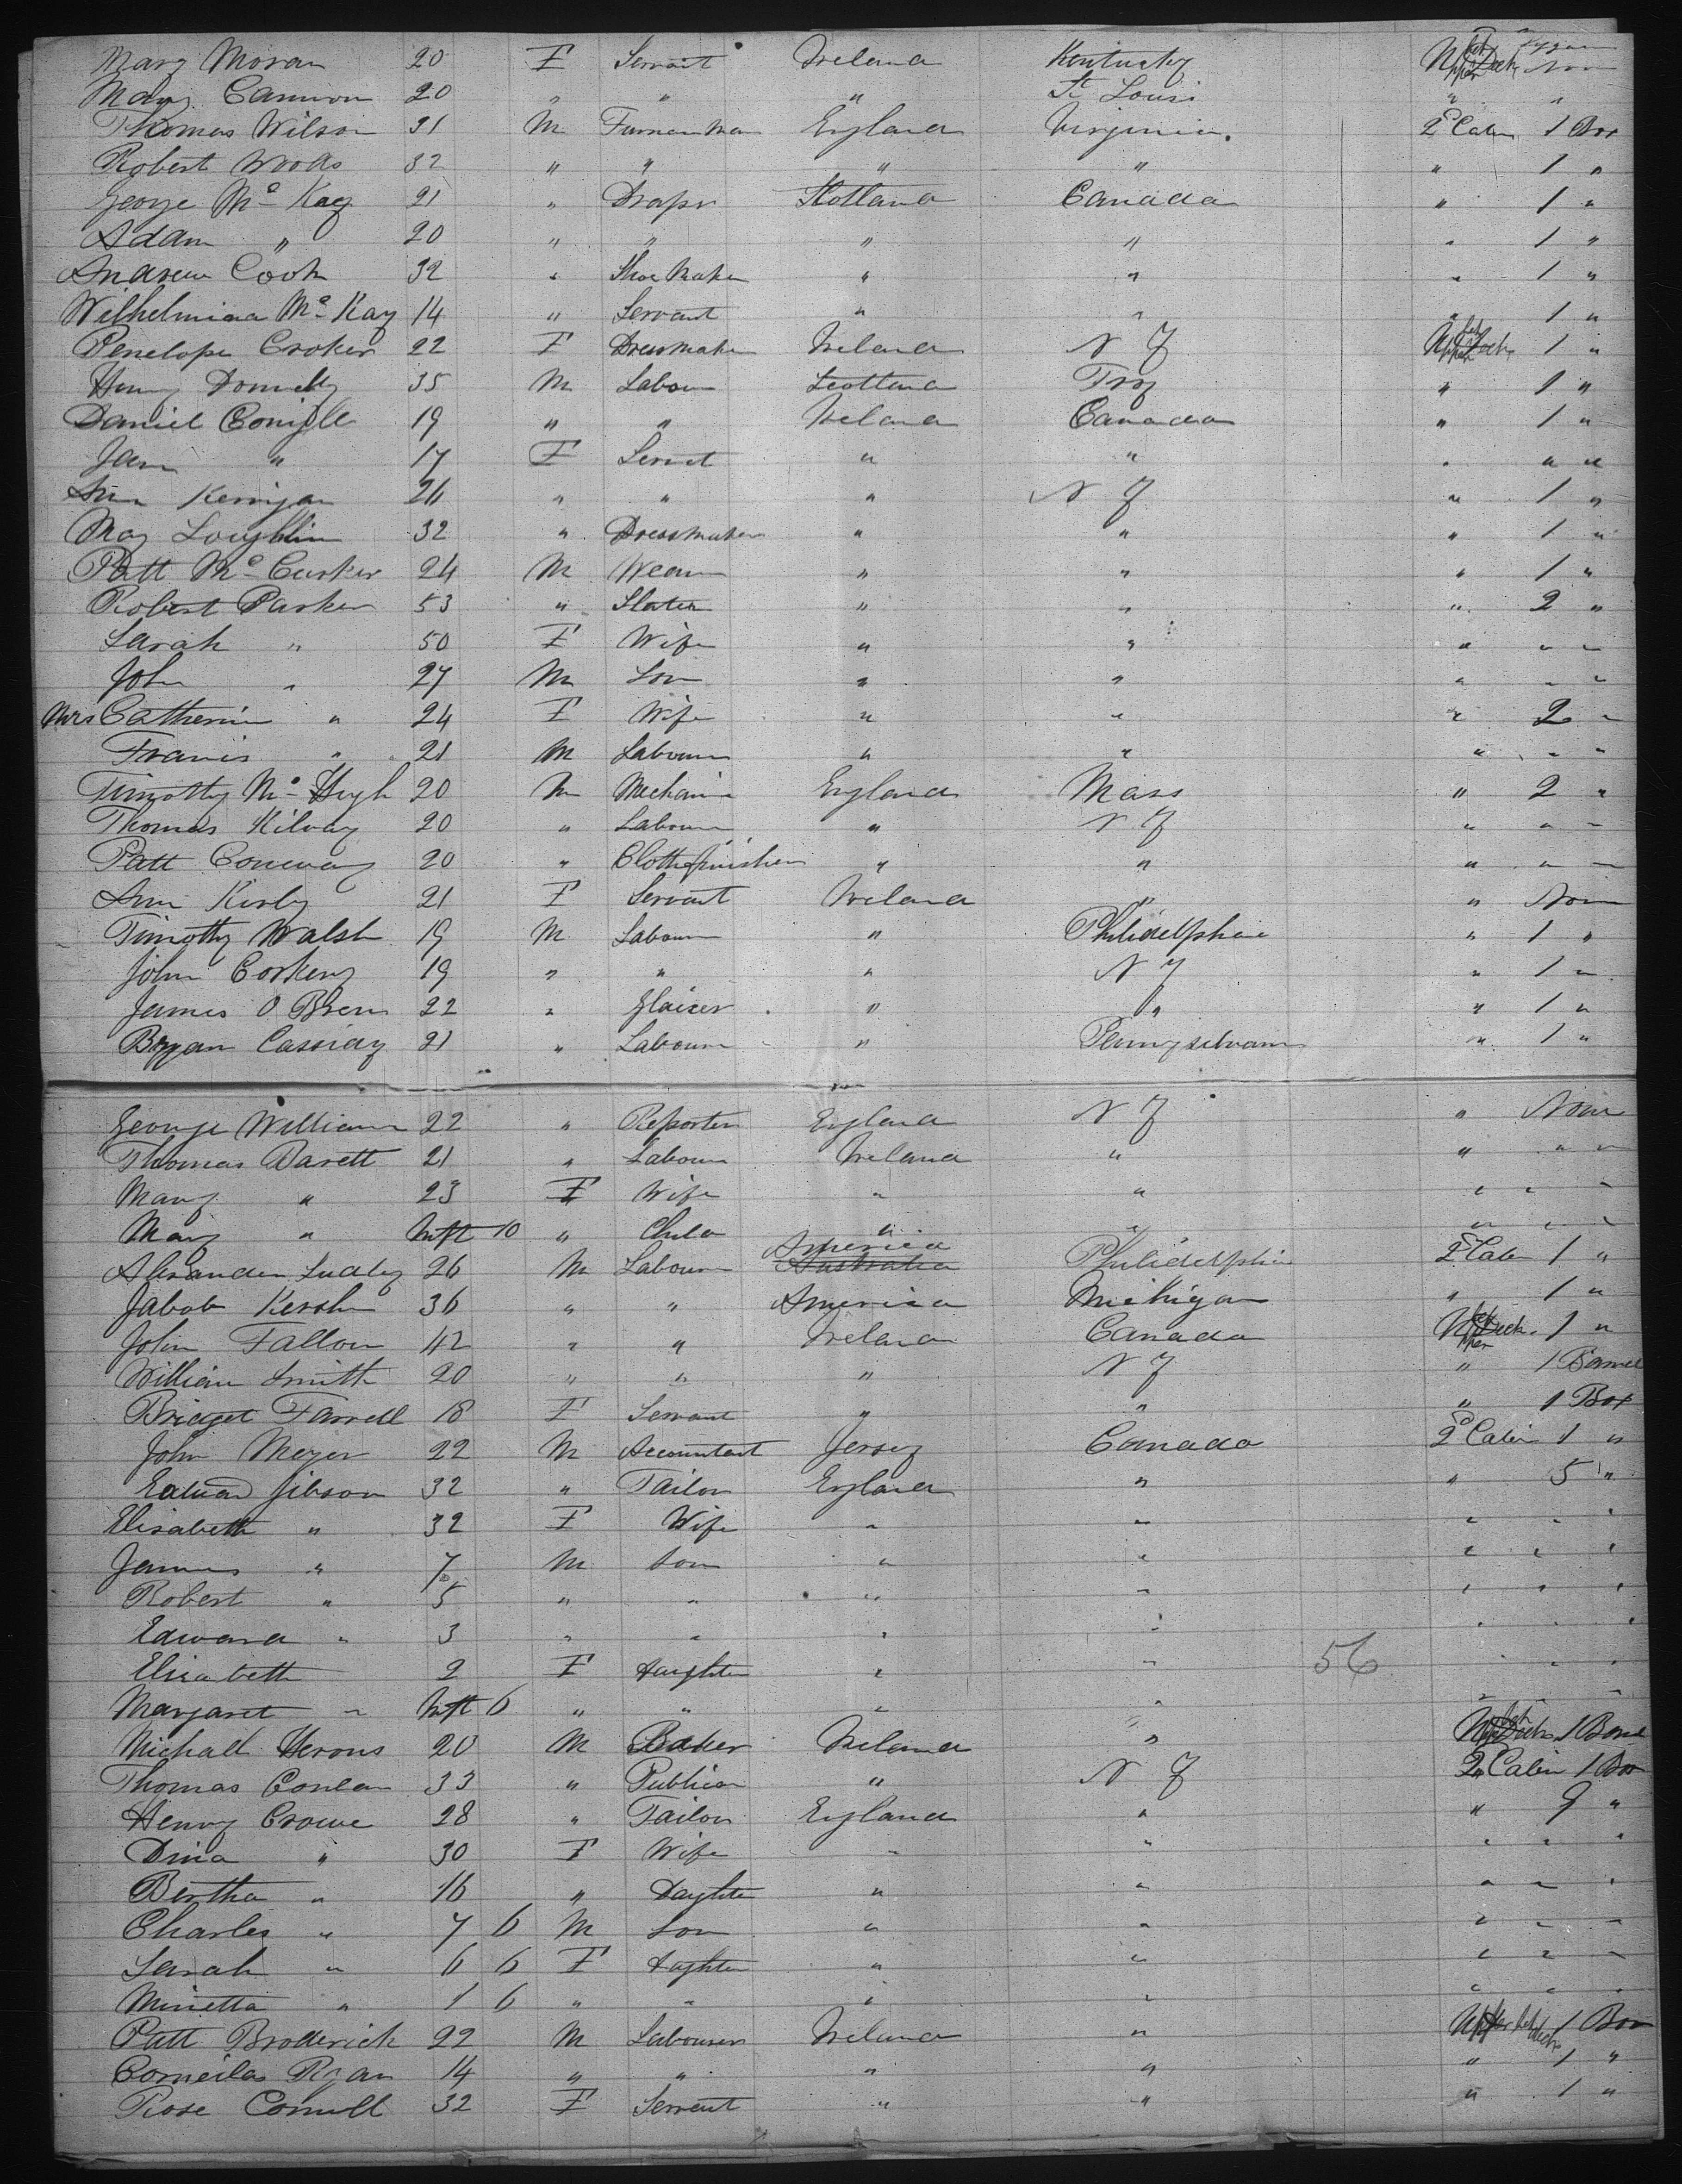 Mary Moran 20 F Servant Ireland Kentucky Upper bet Deck
Mary Cannon 20 " " " St Louis " "
Thomas Wilson 31 M Furnaceman England Virginia. 2d Cabin 1 Box
Robert Woods 32 " " " " " 1 "
George Mc Kay 21 " Draper Scotland Canada " 1 "
Adam " 20 " " " " " 1 "
Andrew Cook 32 " Shoe Maker " " " 1 "
Wilhelmina Mc Kay 14 " Servant " " " 1 "
Penelope Croker 22 F Dressmaker Ireland N Y Upper bet Deck 1 "
Henry Donnelly 35 M Labour Scotland Troy " 1 "
Daniel 19 " " Ireland Canada " 1 "
Jane " 17 F Servnt " " " " "
Ann Kerrigan 26 " " " N Y " 1 "
May Loughlin 32 " Dressmaker " " " 1 "
Patt Mc Cusker 24 M Weaver " " " 1 "
Robert Parker 53 " Slater " " " 2 "
Sarah " 50 F Wife " " " " "
John " 27 M Son " " " " "
Mrs Catherine " 24 F Wife " " " 2 "
Francis " 21 M Labourer " " " " "
Timothy Mc Hugh 20 M Mechanic England Mass " 2 "
Thomas Kilvay 20 " Labourer " N Y " " "
Patt Conway 20 " Clothfinisher " " " " "
Ann Kirby 21 F Servant Ireland " " None
Timothy Walsh 19 M Labourer " Philidelphia " 1 "
John Corkery 19 " " " N Y " 1 "
James O Brien 22 " Glaizer " " " 1 "
Bryan Cassidy 21 " Labourer " Pennysilvania " 1 "
George William 22 " Reporter England N Y " None
Thomas Barett 21 " Labourer Ireland " " " "
Mary " 23 F Wife " " " " "
Mary " Inft 10 " Child " " " " "
Alexander Ludley 26 M Labourer America Australia Philidelphia 2d Cabin 1 "
Jabob Kersh 36 " " America Michigan " 1 "
John Fallon 42 " " Ireland Canada Upper bet Deck 1 "
William Smith 20 " " " N Y " 1 Barrel
Bridget Farrell 18 F Servant " " " 1 Box
John Meyer 22 M Accountant Jersey Canada 2d Cabin 1 "
Edward Gibson 32 " Tailor England " " 5 "
Elisabeth " 32 F Wife " " " " "
James " 7 M Son " " " " "
Robert " 5 " " " " " " "
Edward " 3 " " " " " " "
Elisabeth 2 F Daughter " " " " "
56
Margaret " Inft 6 " " " " " " "
Michall Herons 20 M Baker Ireland " Upper bet Deck 1 Barrel
Thomas Conlan 33 " Publican " N Y 2d Cabin 1 Box
Henry Crowe 28 " Tailor England " " 9 "
Dina " 30 F Wife " " " " "
Bertha " 16 " Daughter " " " " "
Charles " 7 6 M Son " " " " "
Sarah " 6 6 F Daghter " " " " "
Minetta " 1 6 " " " " " " "
Patt Broderick 22 M Labourer Ireland " Upper bet Deck 1 Box
Corneilas Ryan 14 " " " " " 1 "
Rose Connell 32 F Servant " " " 1 "